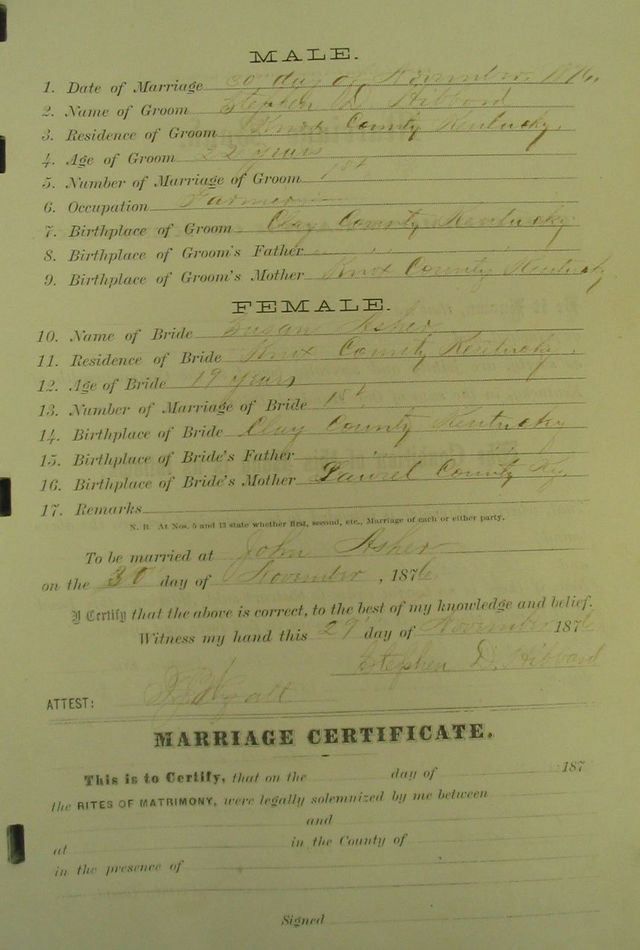 MALE.
1. Date of Marriage 30th day of November 1876.
2. Name of Groom Stephen D. Hibbard
3. Residence of Groom Knox County Kentucky.
4. Age of Groom 22 years
5. Number of Marriage of Groom 1st
6. Occupation Farmer
7. Birthplace of Groom Clay County Kentucky
8. Birthplace of Groom's Father " " "
9. Birthplace of Groom's Mother Knox County Kentucky
FEMALE.
10. Name of Bride Susan Asher
11. Residence of Bride Knox County Kentucky.
12. Age of Bride 19 years
13. Number of Marriage of Bride 1st
14. Birthplace of Bride Clay County Kentucky
15. Birthplace of Bride's Father " " "
16. Birthplace of Bride's Mother Laurel County Ky.
17. Remarks
N. B. At Nos. 5 and 13 state whether first, second, etc., Marriage of each or either party.
To be married at John Asher
on the 30 day of November, 1876
I Certify that the above is correct, to the best of my knowledge and belief.
Witness my hand this 29" day of November 1876
Stephen D. Hibbard
ATTEST: Wyatt
MARRIAGE CERTIFICATE.
This is to Certify, that on the day of 187
the RITES OF MATRIMONY, were legally solemnized by me between
and
at in the County of
in the presence of
Signed